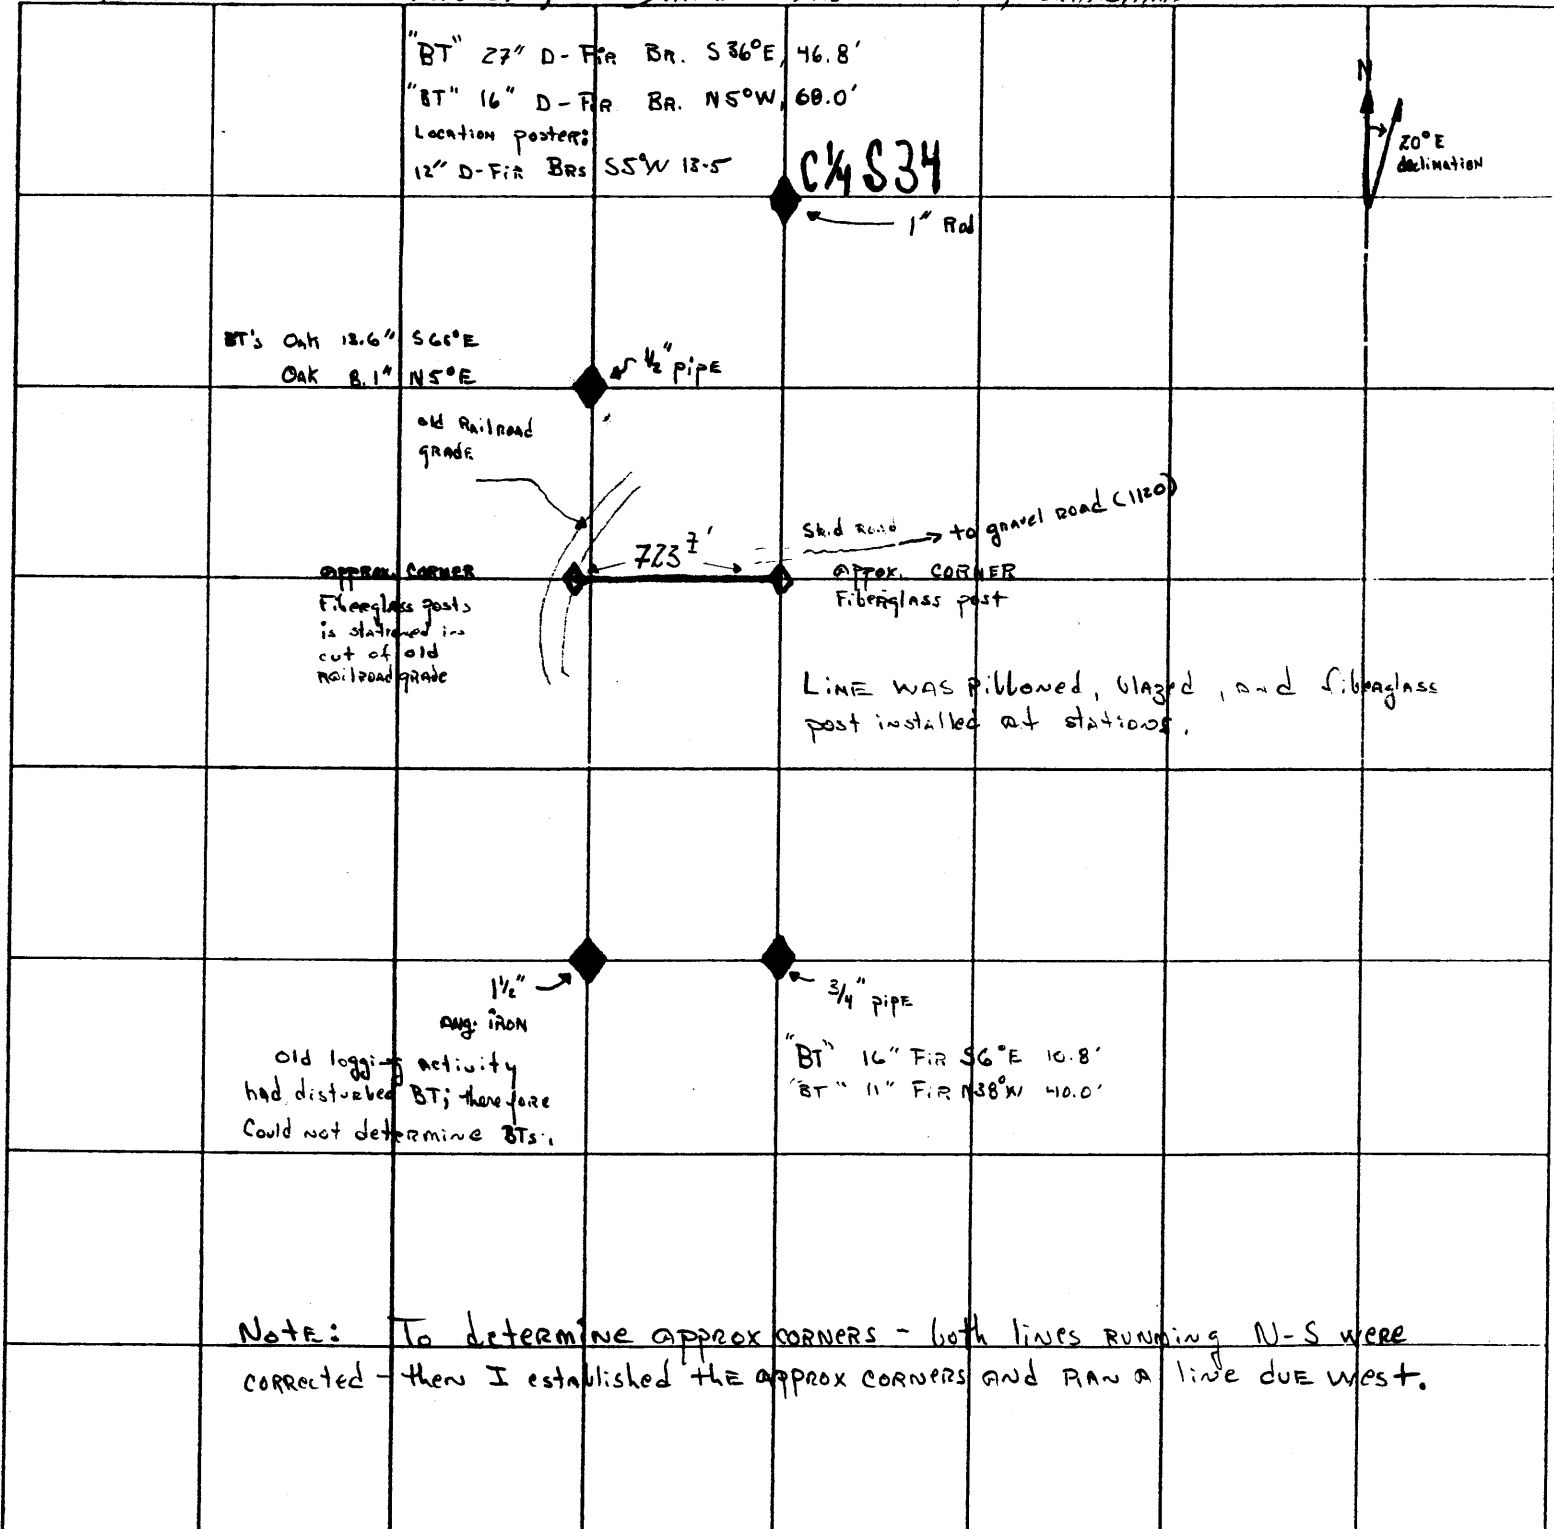 "BT" 27" D-Fir Br. S 36°E, 46.8'
"BT" 16" D-Fir Br. N5°W, 68.0'
Location poster:
12" D-Fir Brs S5°W 13.5
C¼ S34
1" Rod
N
20°E
declination
BT's Oak 13.6" S66°E
Oak 8.1" N5°E
½" pipe
old Railroad
grade
723 7'
Skid Road
to gravel road (1120)
approx. corner
Fiberglass posts
is stationed in
cut of old
railroad grade
appox. corner
Fiberglass post
Line was ribboned, blazed, and fiberglass
post installed at stations.
1½"
ang. iron
Old logging activity
had disturbed BT; therefore
Could not determine BTs.
3/4" pipe
"BT" 16" Fir S6°E 10.8'
"BT" 11" Fir N38°W 40.0'
Note: To determine approx corners - both lines running N-S were
corrected - then I established the approx corners and ran a line due west.